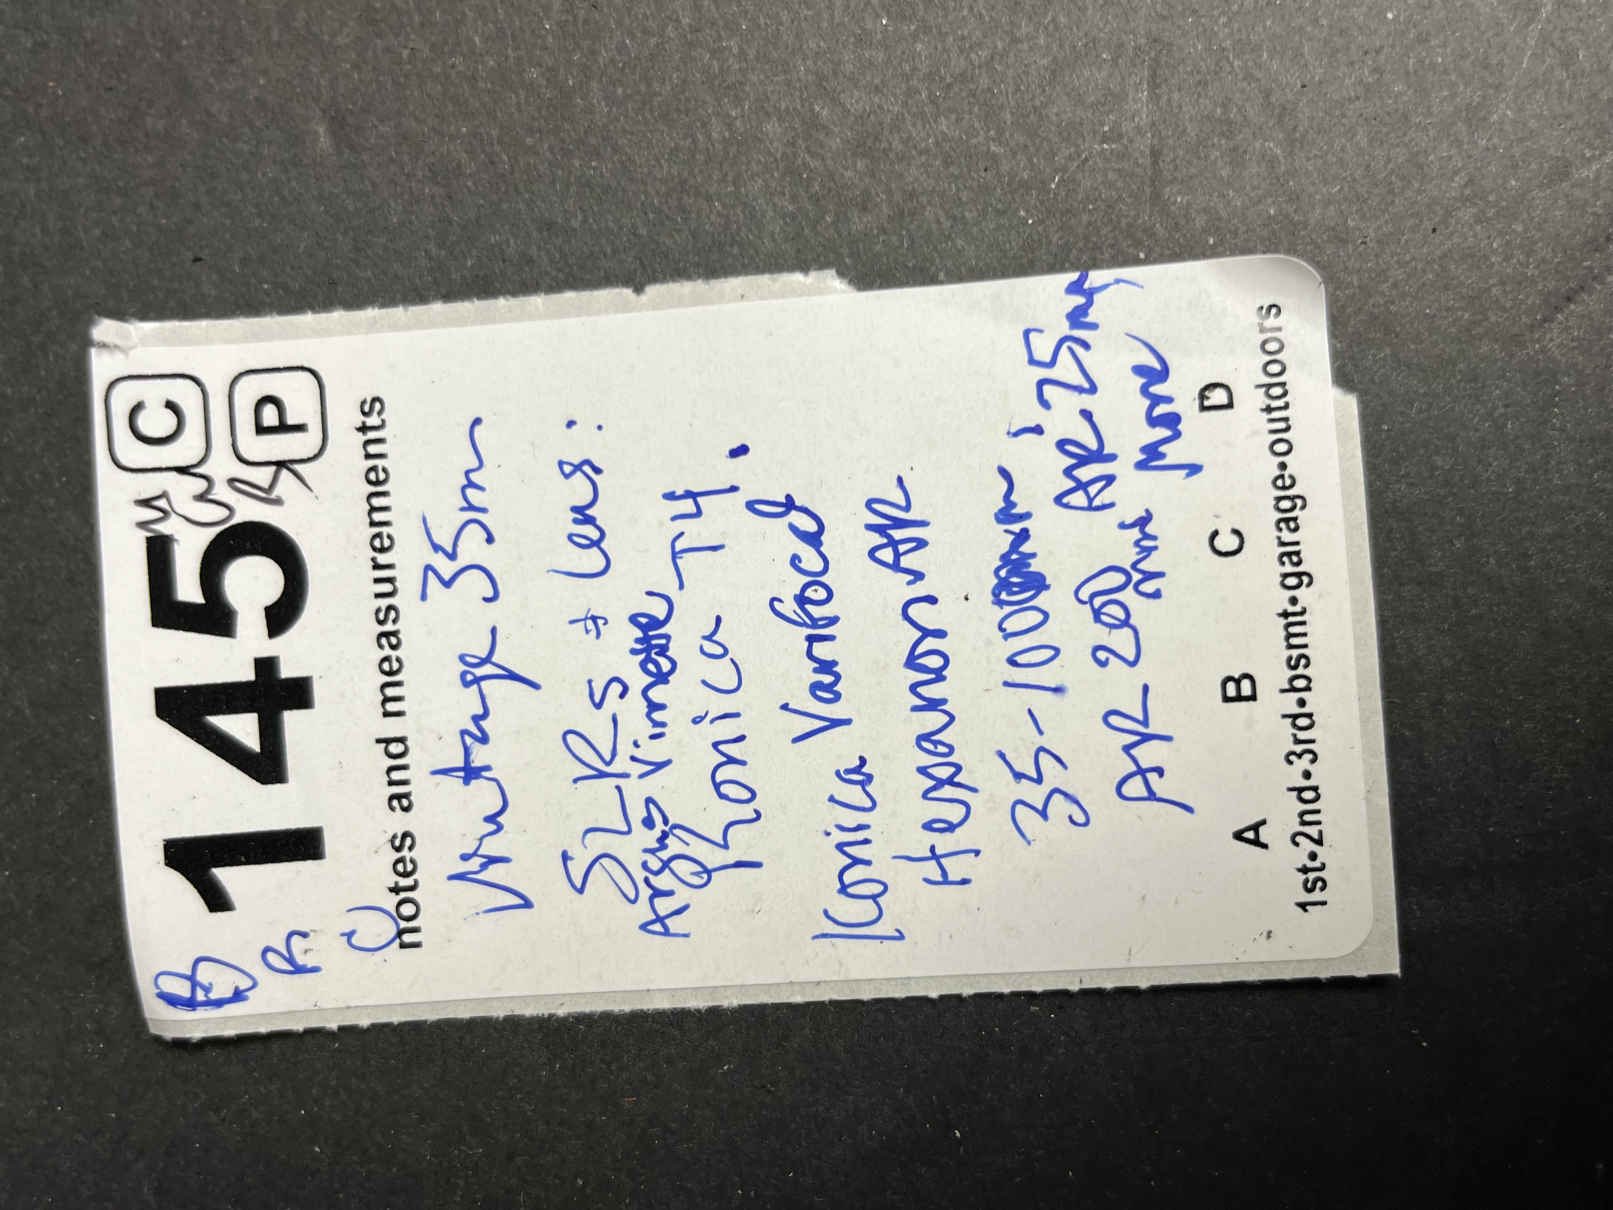 B 145 C
R P
C
notes and measurements
Vintage 35m
SLRs + Lens:
Argus
Konica T4.
Konica Varifocal
Hexanon AR
35-100
AR 25mm
AR 200 mm More
A B C D
1st•2nd•3rd•bsmt•garage•outdoors